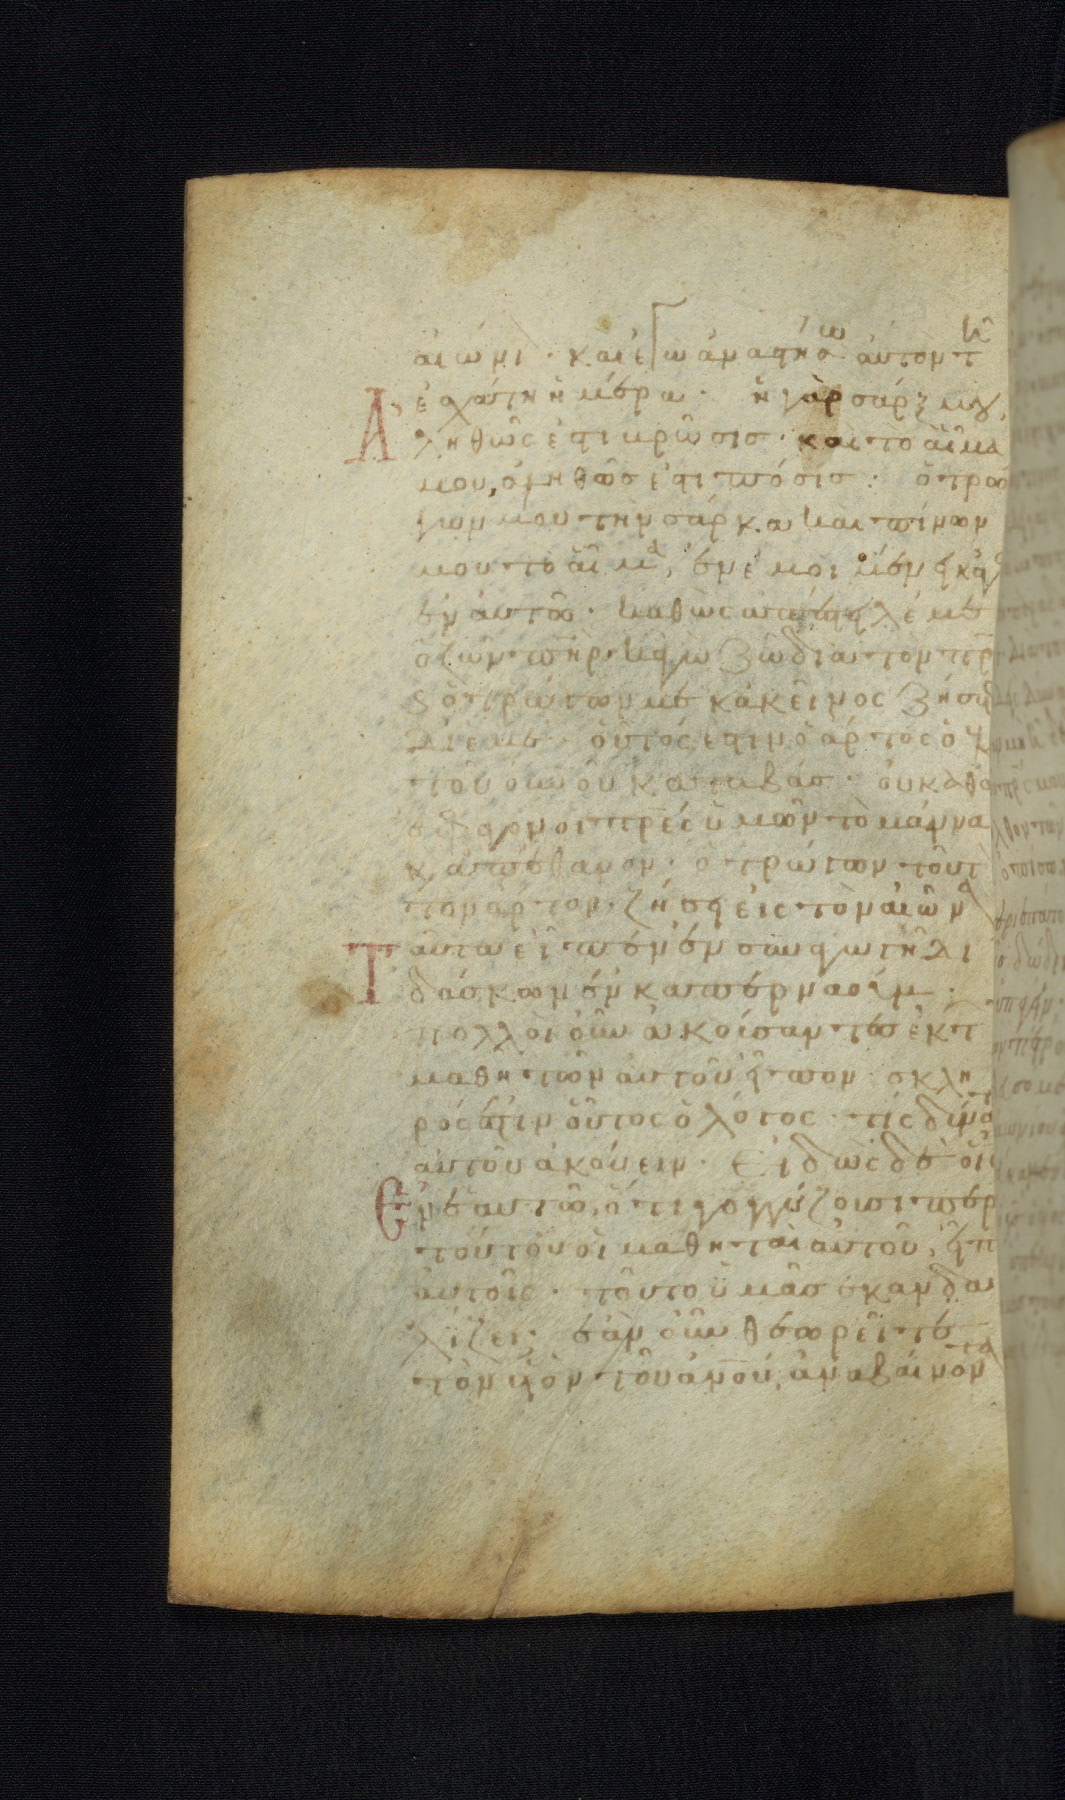 αἰώνι· καὶ ἐγὼ ἀναστήσω αὐτὸν τῆ
ἐσχάτη ἡμέρα· ἡ γὰρ σάρξ μου,
Ἀληθῶς ἐστι βρῶσις· καὶ τὸ αἷμα
μου, ἀληθῶς ἐστι πόσις: ὁ τρώ
γων μου τὴν σάρκα καὶ πίνων
μου τὸ αἷμα, ἐν ἐμοὶ μένει κἀγὼ
ἐν αὐτῶ· καθὼς ἀπέστειλέ με
ὁ ζῶν πηρ· κἀγὼ ζῶ διὰ τὸν πρα
κ ὁ τρώγων με κἀκεῖνος ζήσει
δι ἐμέ· οὗτός ἐστιν ὁ ἄρτος ὁ ἐκ
τοῦ οὐνοῦ καταβάς· οὐ καθὼ
ς ἔφαγον οἱ πρες ὑμῶν τὸ μάννα
κ ἀπέθανον· ὁ τρώγων τοῦτ
τὸν ἄρτον· ζήσει εἰς τὸν αἰῶνα
Ταῦτα εἶπεν ἐν συναγωγῆ δι
δάσκων ἐν καπερναούμ·
πολλοὶ οὖν ἀκούσαντες ἐκ τ
μαθητῶν αὐτοῦ εἶπον· σκλη
ρός ἐστιν οὗτος ὁ λόγος· τίς δύνα
αὐτοῦ ἀκούειν· Εἰδὼς δὲ ὁ ις
Ἐν ἑαυτῶ, ὅτι γογγύζουσι περ
τούτου οἱ μαθηταὶ αὐτοῦ, εἶπ
αὐτοῖς· τοῦτο ὑμᾶς σκανδα
λίζει; ἐὰν οὖν θεωρεῖτε
τὸν υἱὸν τοῦ ανου, ἀναβαίνοντα